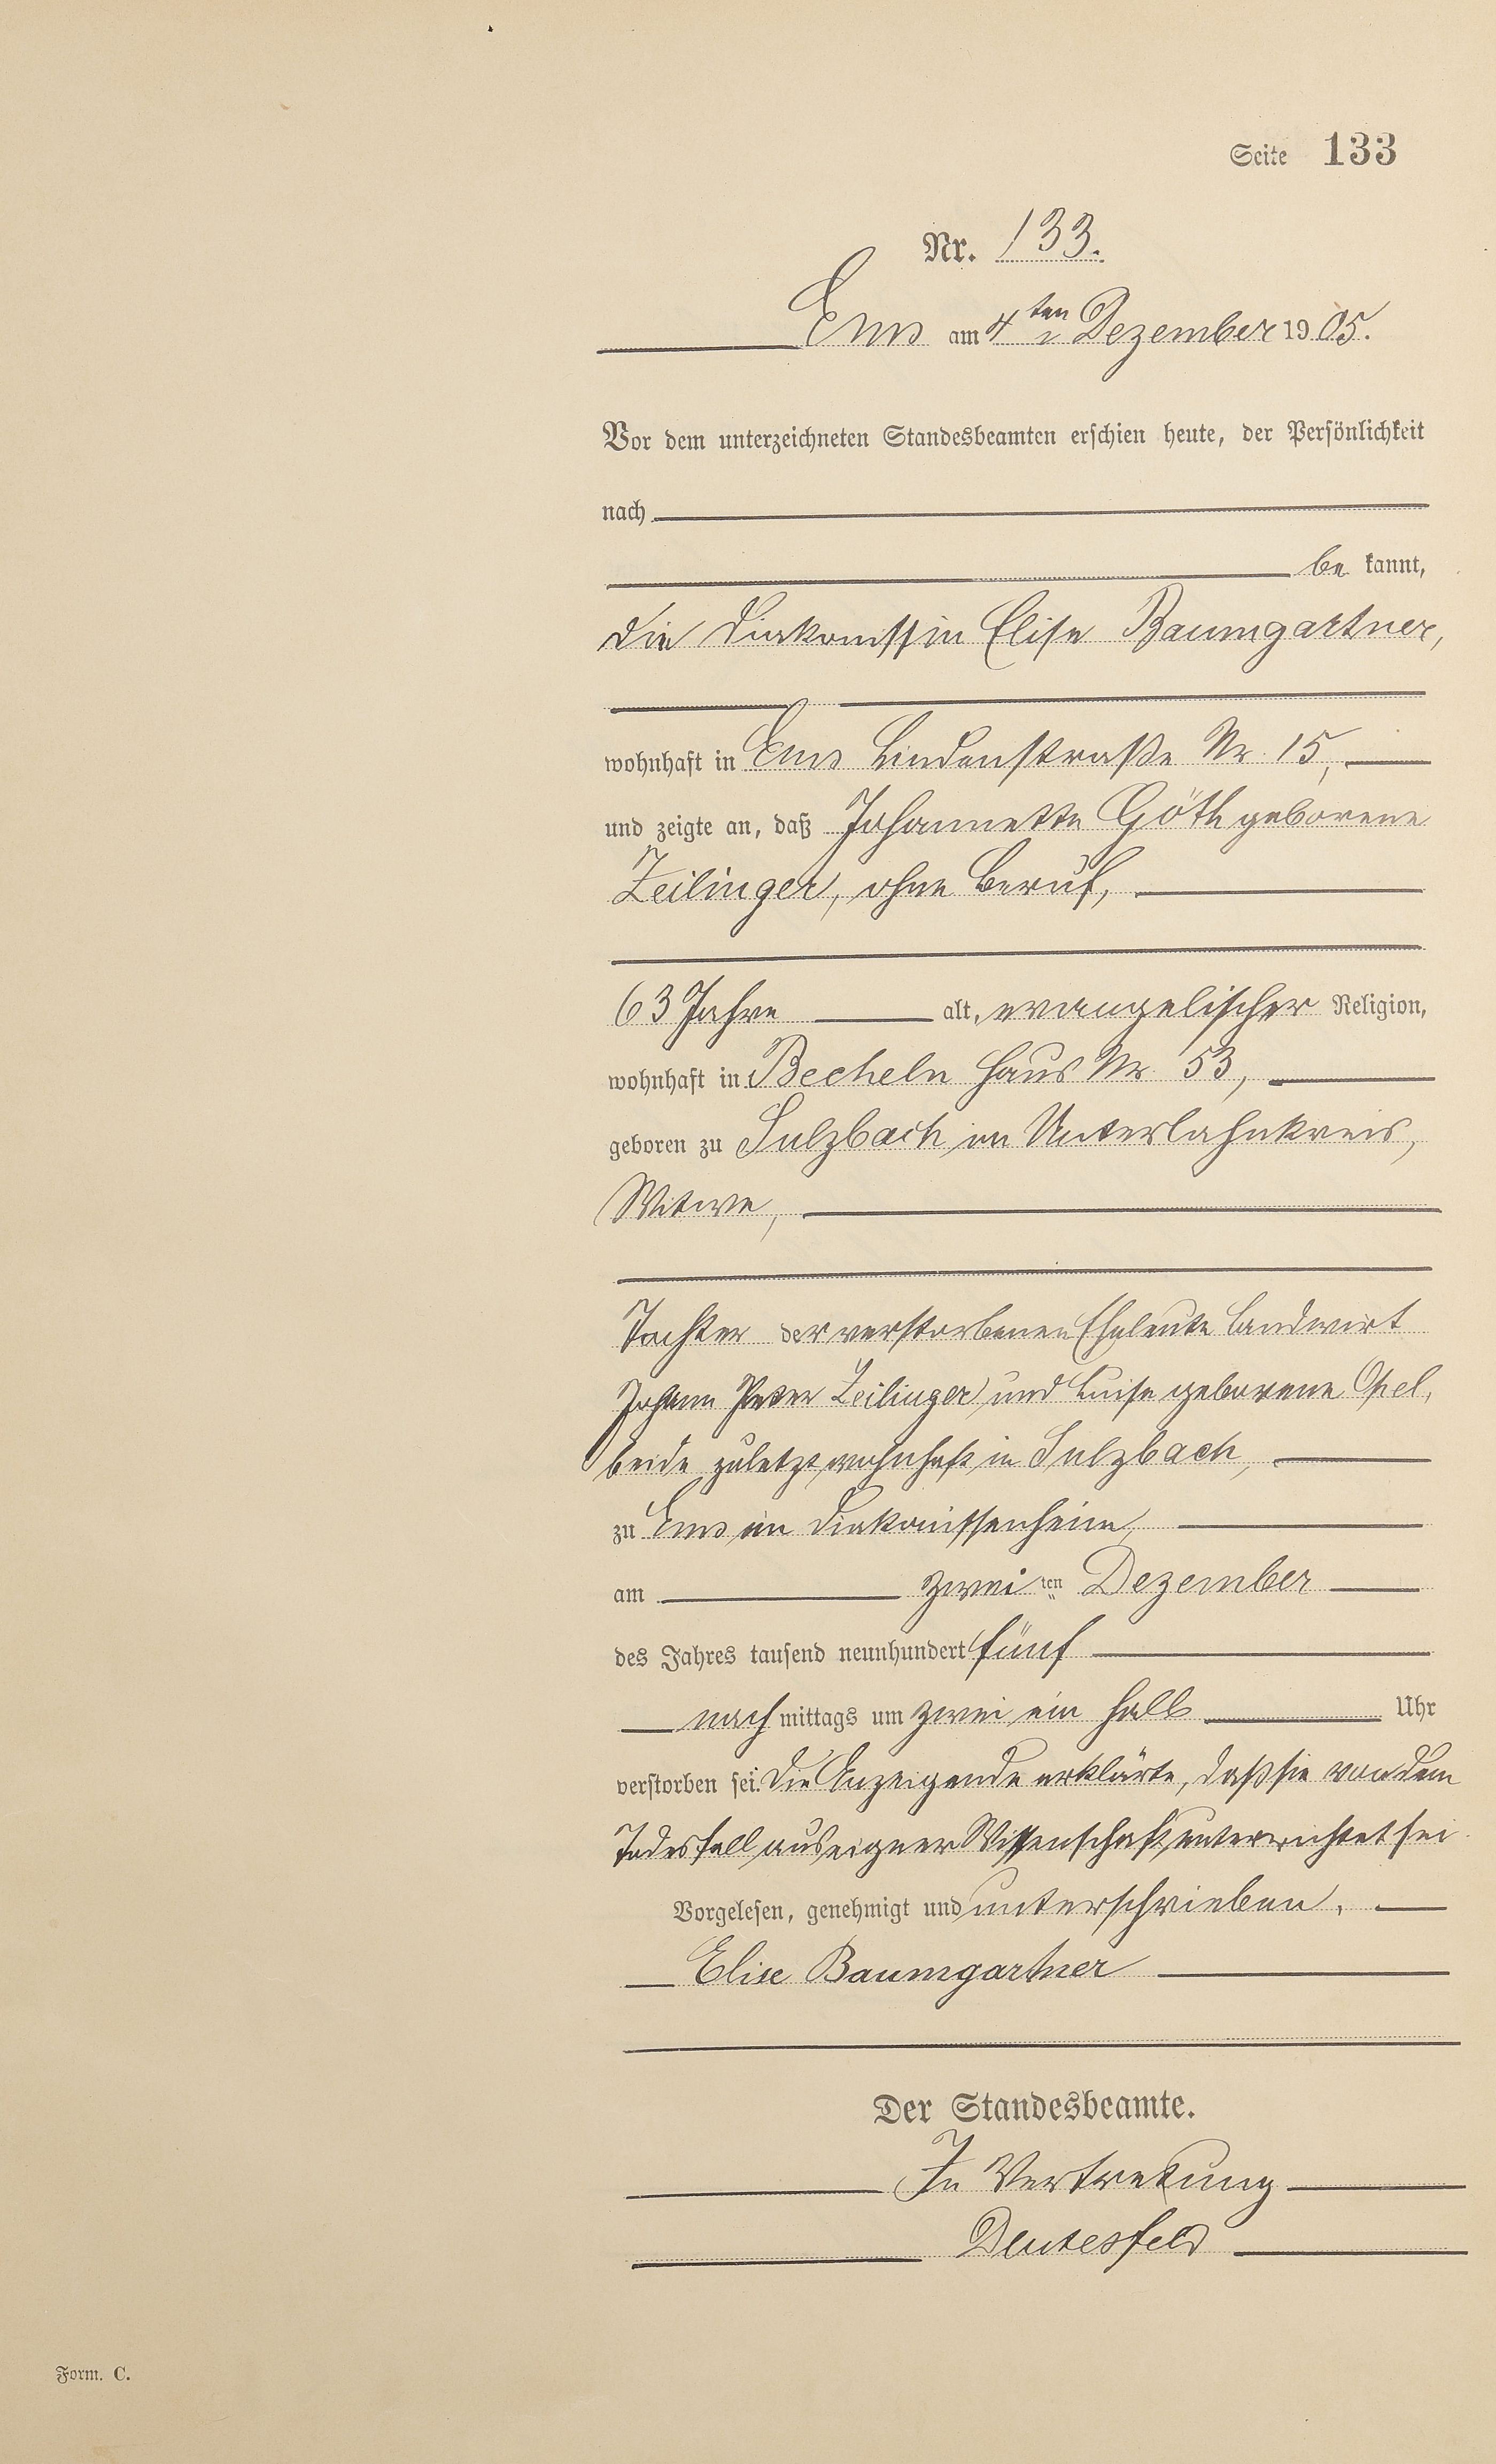 Seite 133
Nr. 133.
Ems am 4ten Dezember 1905.
Vor dem unterzeichneten Standesbeamten erschien heute, der Persönlichkeit
nach
be kannt,
die Diakonissin Elise Baumgartner,
wohnhaft in Ems Lindenstraße Nr. 15,
und zeigte an, daß Johannette Göth geborene
Zeilinger, ohne Beruf,
63 Jahre alt, evangelischer Religion,
wohnhaft in Becheln Haus Nr. 53,
geboren zu Sulzbach im Unterlahnkreis,
Witwe,
Tochter der verstorbenen Eheleute Landwirt
Johann Peter Zeilinger und Luise geborene Opel,
beide zuletzt wohnhaft in Sulzbach,
zu Ems im Diakonissenheim,
am zweiten Dezember
des Jahres tausend neunhundert fünf
nach mittags um zwei ein halb Uhr
verstorben sei. Die Anzeigende erklärte, daß sie von dem
Todesfall aus eigner Wissenschaft unterrichtet sei.
Vorgelesen, genehmigt und unterschrieben.
Elise Baumgartner
Der Standesbeamte.
In Vertretung
Deutesfeld
Form. C.